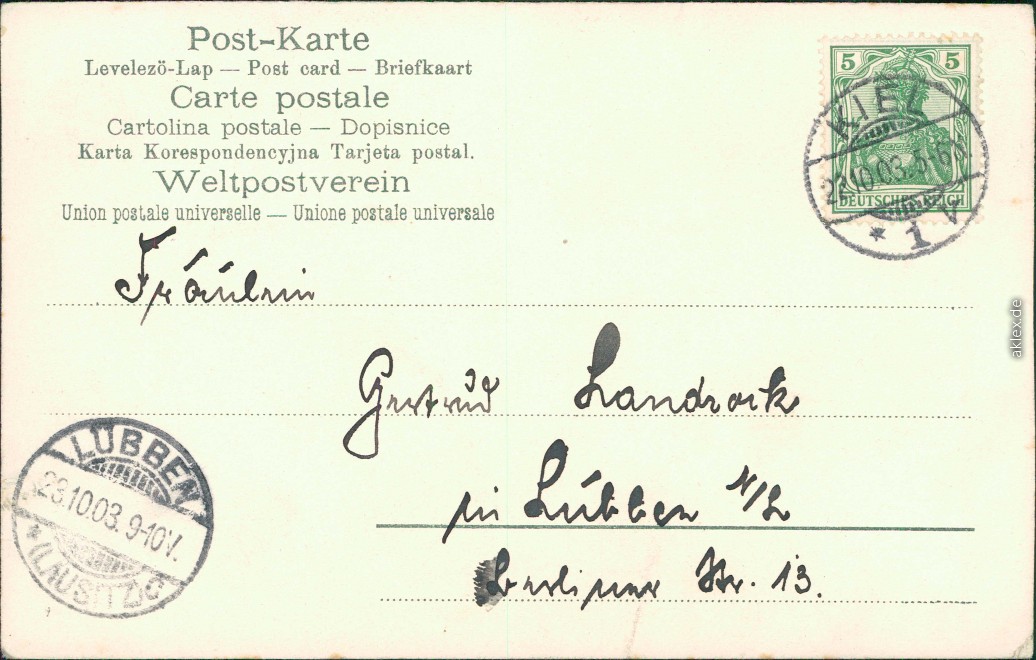 Post-Karte
Levelezö-Lap — Post card — Briefkaart
Carte postale
Cartolina postale — Dopisnice
Karta Korespondencyjna Tarjeta postal.
Weltpostverein
Union postale universelle — Unione postale universale
5 5
DEUTSCHES REICH
KIEL
22.10.03. 5-6N.
* 1 V
Fräulein
Gertrud Landrock
in Lübben N/L
Berliner Str. 13.
LÜBBEN
23.10.03. 9-10V.
* (LAUSITZ) c
aklex.de